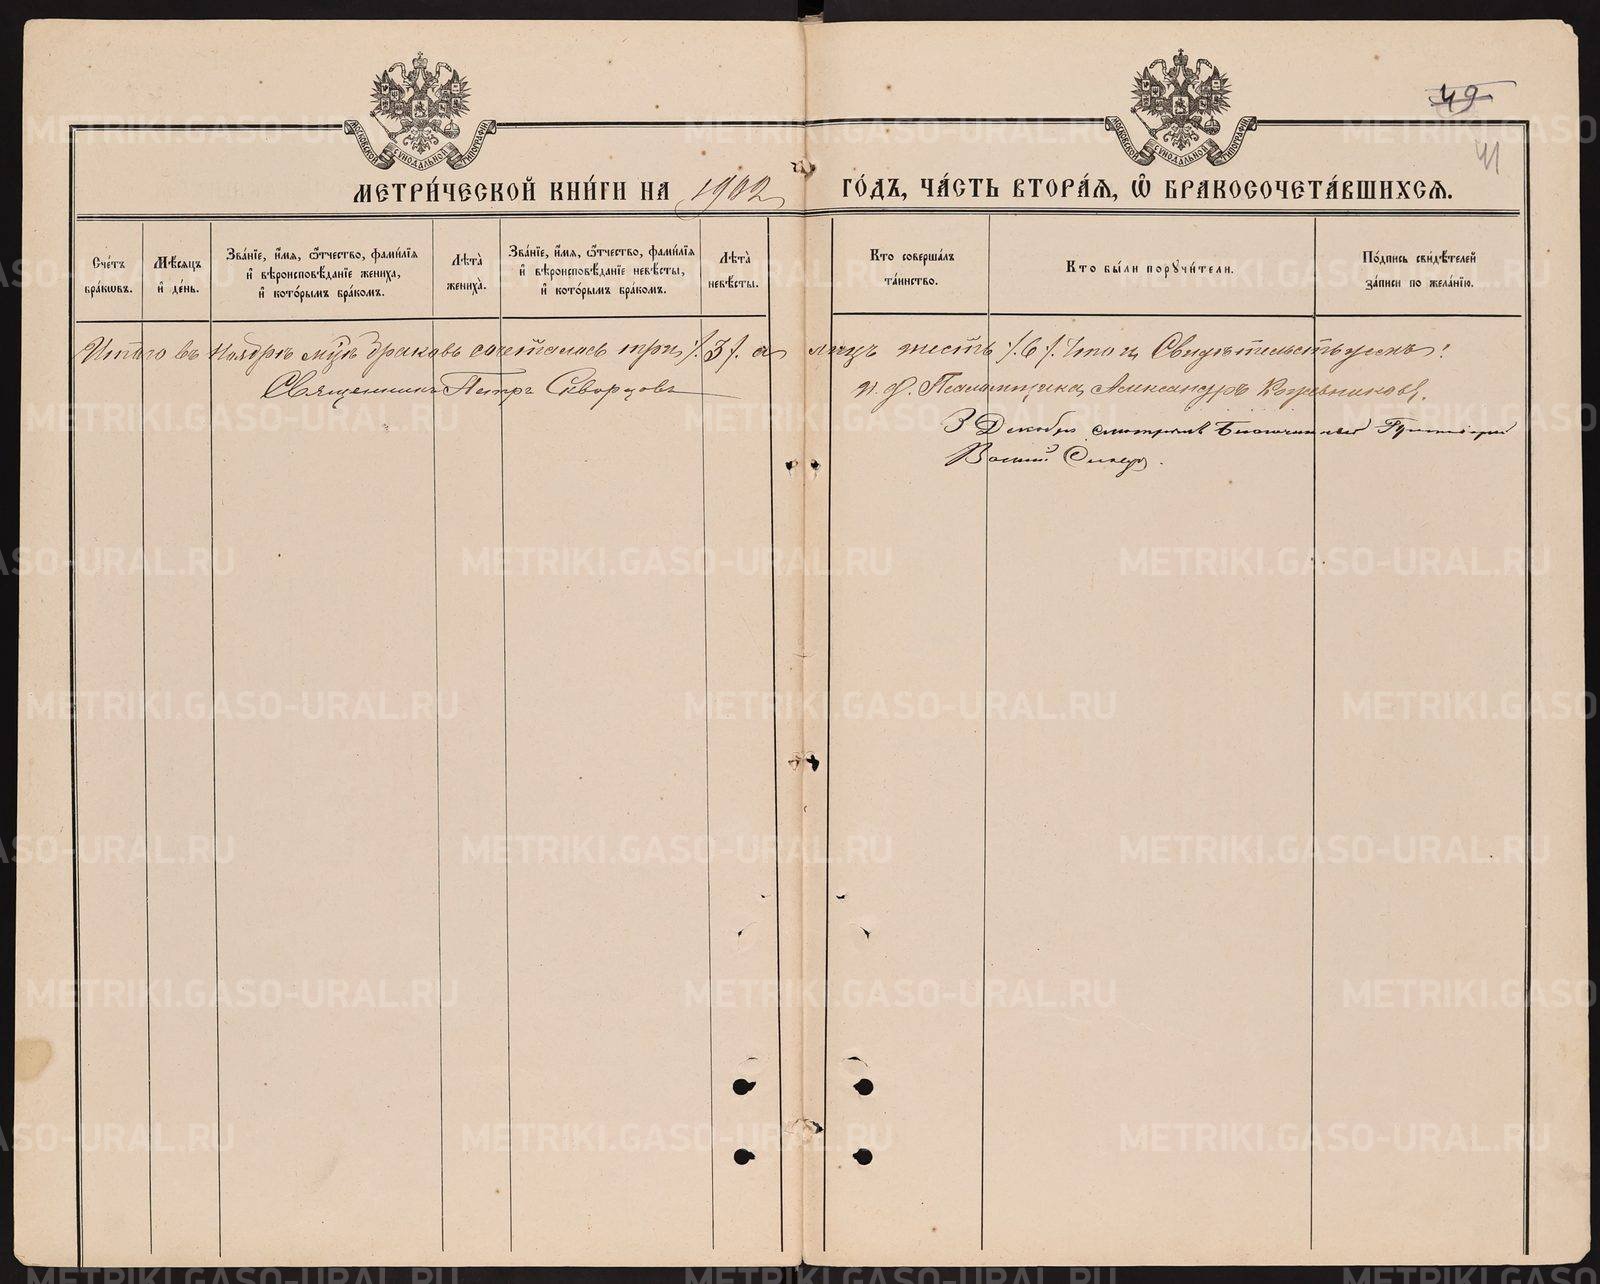 49
41
МОСКОВСКОЙ СѴНОДАЛЬНОЙ ТИПОГРАФІИ
МОСКОВСКОЙ СѴНОДАЛЬНОЙ ТИПОГРАФІИ
МЕТРИ́ЧЕСКОЙ КНИ́ГИ НА 1902 ГО́ДЪ, ЧА́СТЬ ВТОРА́Я, Ѡ҆ БРАКОСОЧЕТА́ВШИХСЯ.
Сче́тъ бра́кѡвъ.
Мѣ́сяцъ и҆ де́нь.
Зва́нїе, и҆́мя, ѻ҆́тчество, фами́лїя и҆ вѣроисповѣ́данїе жениха̀, и҆ кото́рымъ бра́комъ.
Лѣта̀ жениха̀.
Зва́нїе, и҆́мя, ѻ҆́тчество, фами́лїя и҆ вѣроисповѣ́данїе невѣ́сты, и҆ кото́рымъ бра́комъ.
Лѣта̀ невѣ́сты.
Кто соверша́лъ та́инство.
Кто бы́ли порꙋчи́тели.
По́дпись свидѣ́телей за́писи по жела́нїю.
Итого въ Ноябрѣ м҃цѣ браковъ сочеталось три /. 3 /. а лицъ шесть /. 6 /. что и Свидѣтельствуемъ:
Священникъ Петръ Скворцовъ
и. д. Псаломщика Александръ
3 Декабря смотрѣлъ Благочинный
METRIKI.GASO-URAL.RU